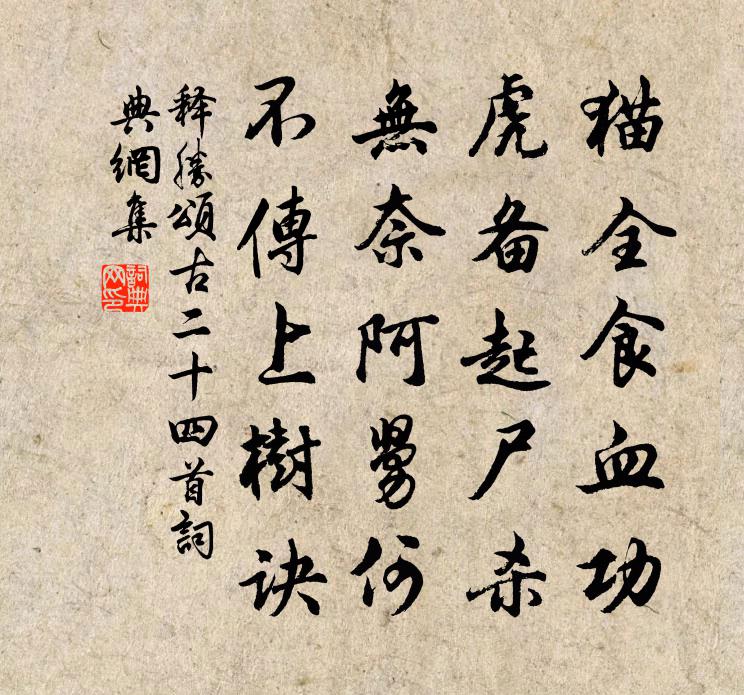 猫全食血功
虎备起尸杀
無奈阿舅何
不傳上樹诀
释勝頌古二十四首詞
典網集
詞典
网印